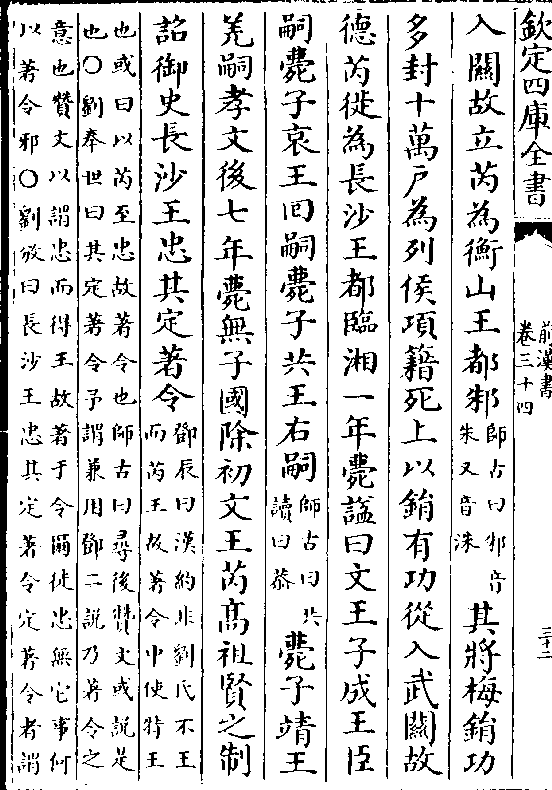 欽定四庫全書
前漢書
卷三十四
三十二
入關故立芮為衡山王都邾師古曰邾音朱又音洙其將梅鋗功
多封十萬户為列侯項籍死上以鋗有功從入武關故
德芮徙為長沙王都臨湘一年薨諡曰文王子成王臣
嗣薨子哀王回嗣薨子共王右嗣師古曰共讀曰恭薨子靖王
羌嗣孝文後七年薨無子國除初文王芮髙祖賢之制
詔御史長沙王忠其定著令鄧辰曰漢約非劉氏不王而芮王故著令中使特王
也或曰以芮至忠故著令也師古曰尋後贊文或説是
也○劉奉世曰其定著令予謂兼用鄧二説乃著令之
意也贊文以謂忠而得王故著于令爾徒忠無它事何
以著令邪○劉攽曰長沙王忠其定著令定著令者謂